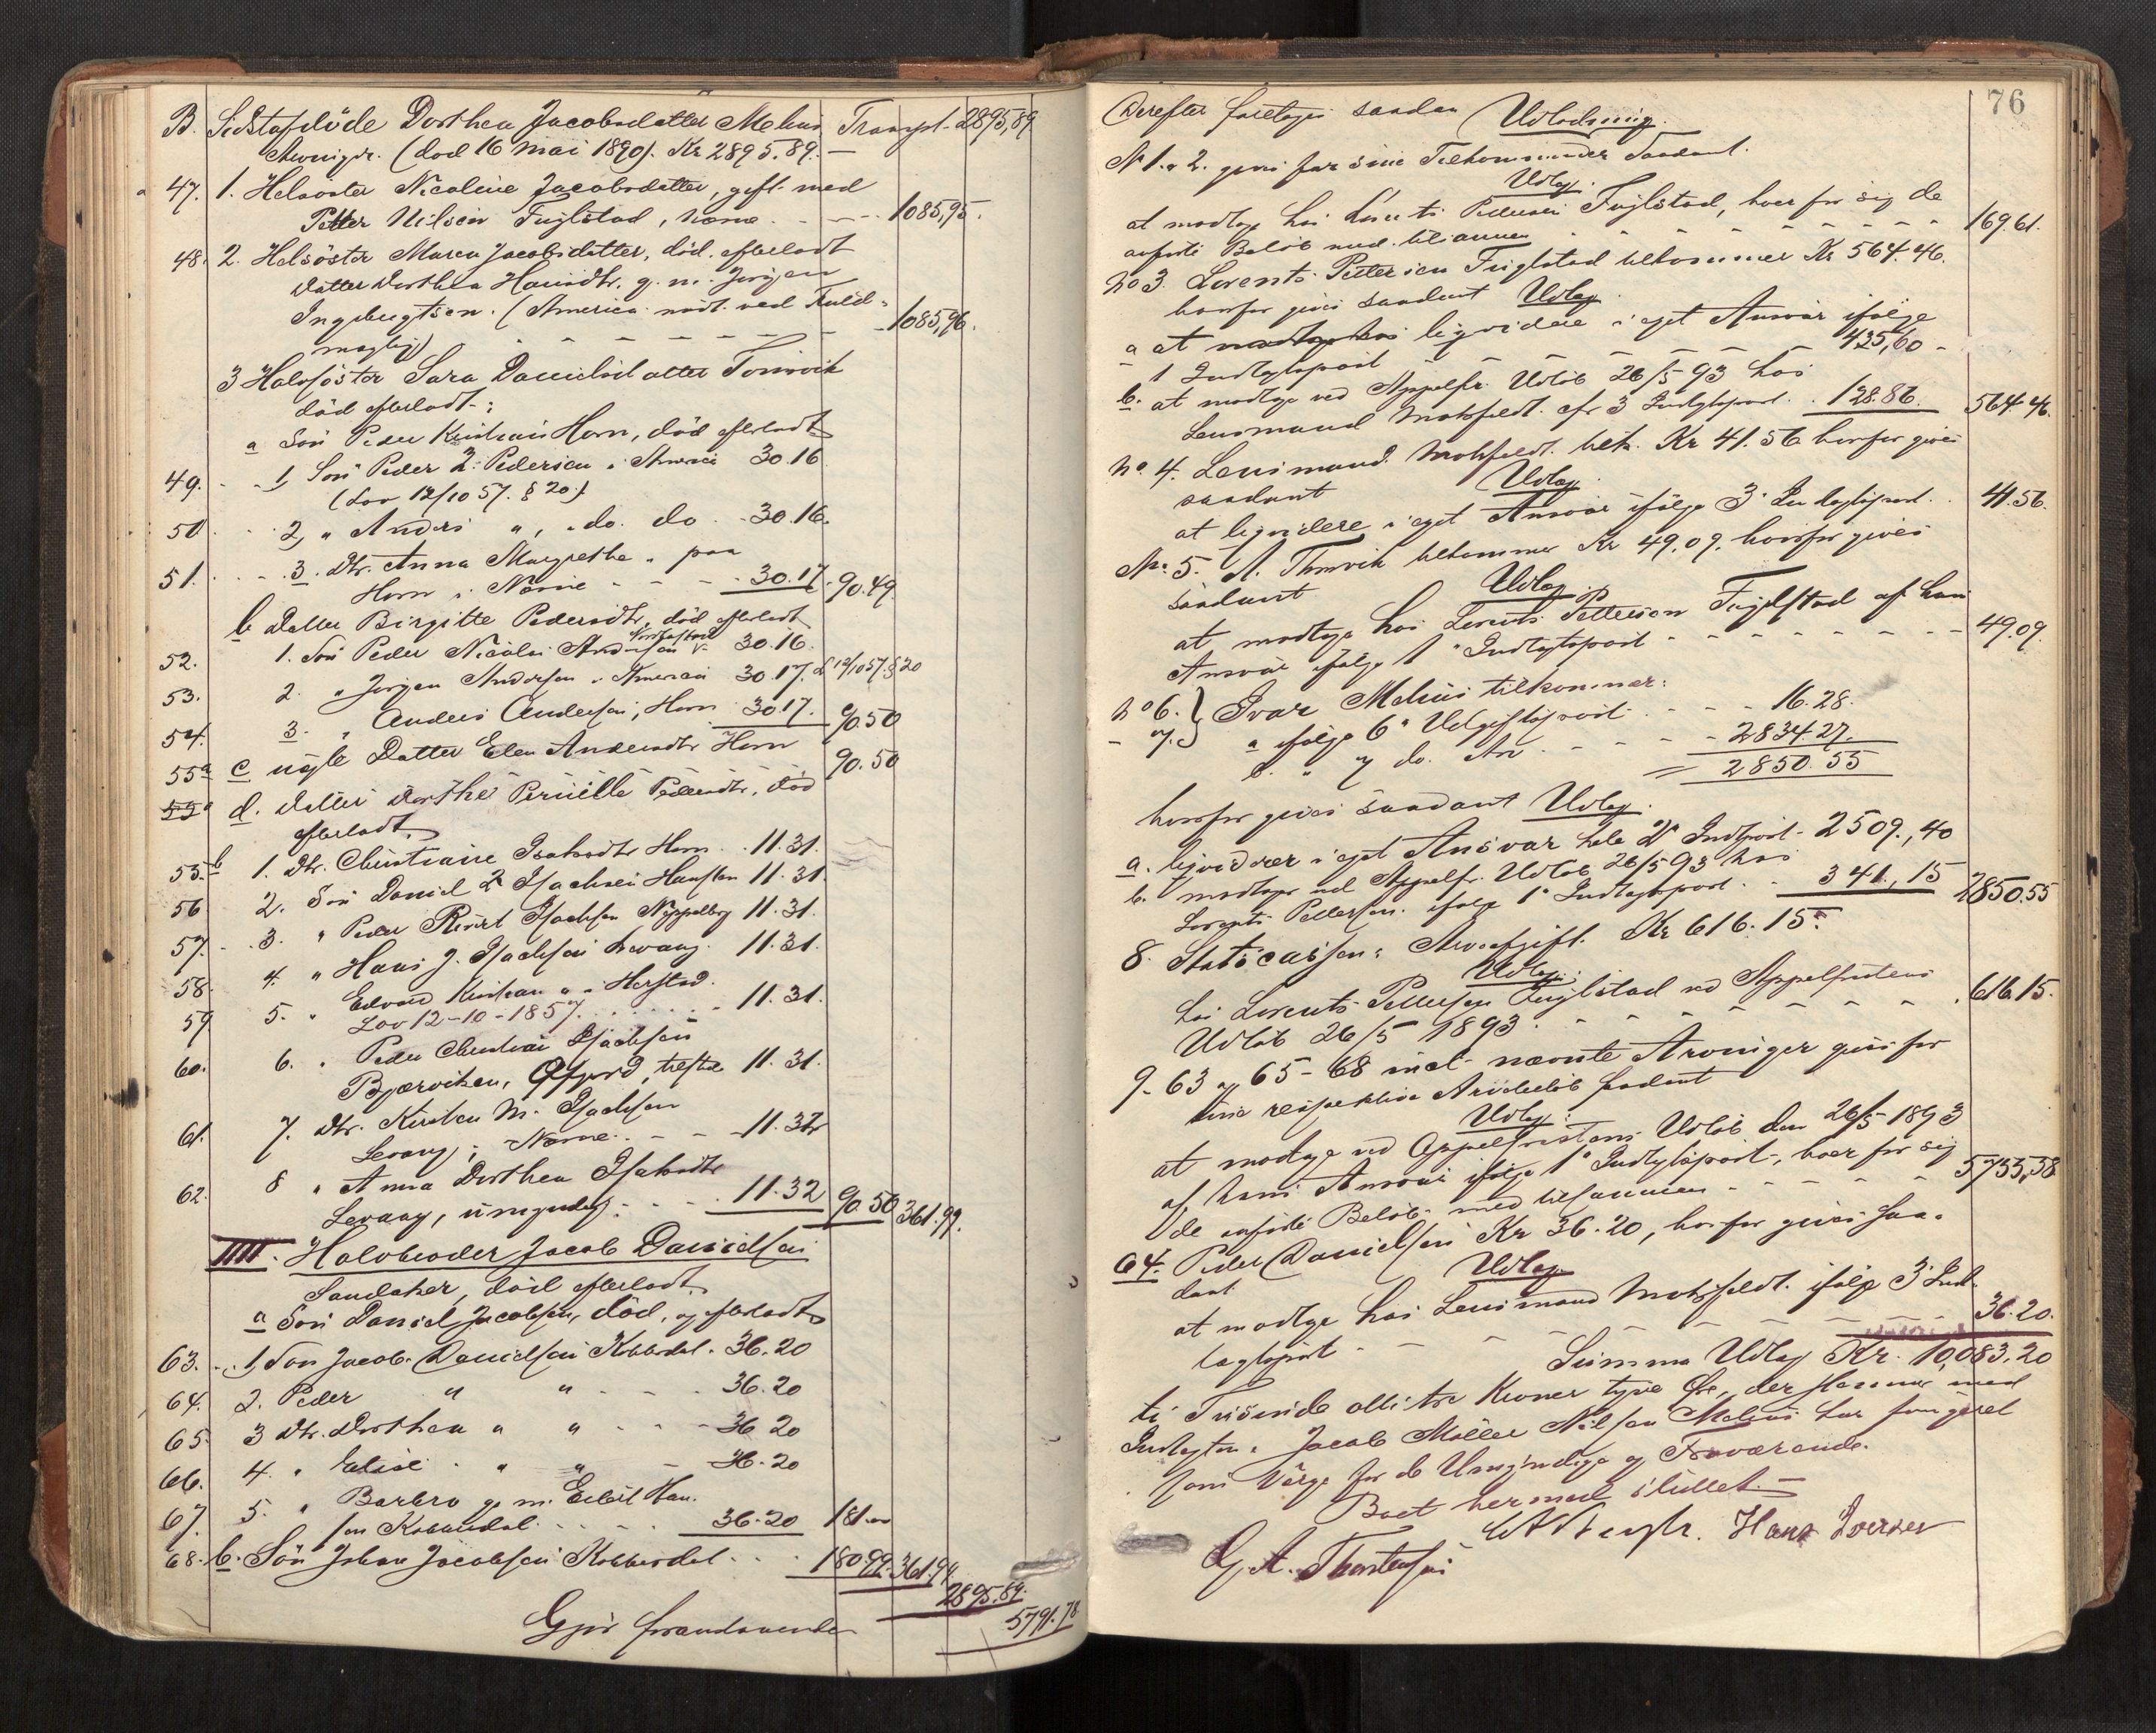 B. Sidstafdöde Dorthea Jacobsdatter Melnes Transpt. 2895,89
Arvinger. (död 16 Mai 1890). Kr 2895.89. —
47. 1. Helsöster Nicoline Jacobsdatter, gift med
Petter Nilsen Fuglstad, Nærne - - - 1085,95.
48. 2. Helsöster Maren Jacobsdatter, död, efterladt
Datter Dorthea Hansdtr. g. m. Jörgen
Ingebrigtsen. (America mödt ved Fuld-
mægtig) - - - - - - 1085,96.
3 Halvsöster Sara Danielsdatter Tomvik
död efterladt:
a Sön Peder Kristian Horn, död efterladt
49. - - 1, Sön Peder Z. Pedersen i America 30.16
(Lov 12/10 57. § 20.)
50 - - 2, " Anders ", . do. do. - 30.16.
51. - - - 3. Dtr. Anna Margrethe " paa
Horn i Nærne - - - - 30.17. 90.49
b Datter Birgitte Pedersdtr, död efterladt
52. 1. Sön Peder Nicolai Andersen 30.16.
53. 2. " Jörgen Andersen i America 30.17. L 12/10 57. § 20
54. 3. " Anders Andersen, Horn 30.17. 90.50
55a c ugte Datter Elen Andersdtr Horn 90.50
55 d. Datter Dorthe Pernille Pedersdtr, död
efterladt.
55.b 1. Dtr. Christiane Isaksdtr Horn. . 11.31.
56 2. Sön Daniel Z Isachsen Haugsten 11.31.
57. - . 3. " Peder Reinert Isachsen Nyppelberg 11.31.
58. 4. " Hans J. Isachsen Levang. 11.31.
59 5. " Edvard Kristian " i Herstad.
Lov 12-10-1857. . . . . . . 11.31.
60. 6. " Peder Christian Isachsen
Bjærviken, Ofjord, tilstede 11.31.
61. 7. Dtr. Kirsten M. Isachsen
Levang i Nærne. - - - 11.32
62. 8 " Anna Dorthea Isaksdtr
Levang, umyndig. - - - 11.32 90.50 361.99.
IIII. Halvbroder Jacob Danielsen
Sandaker, död efterladt.
a Sön Daniel Jacobsen, död, og efterladt
63. - . 1, Sön Jacob Danielsen Kobberdal . 36.20
64. 2. Peder " " - - - 36.20
65. 3 Dtr. Dorthea " " - - - 36 20
66. 4. " Elise " " - 36.20
67. 5. " Barbro g. m. Han.
sen Kobberdal. - - - - 36.20 181.00
68. b. Sön Johan Jacobsen Kobberdal. . . 180.99. 361.99.
2895.89.
5791.78
Gjör foranstaaende
76
Derefter foretoges saadan Udlodning.
No 1. & 2. gives for sine Tilkommender saadant
Udlæg.
at modtage hos Lorents Pettersen Fuglstad, hver for sig de
anförte Belöb med tilsammen - - - - - - - 169.61.
No 3. Lorents Pettersen Fuglstad tilkommer Kr 564.46.
hvorfor gives saadant Udlæg.
a at liqvidere i eget Ansvar ifölge
1 Indtægtspost - - - - - - 435,60 -
b. at modtage ved Appelfr. Udlöb 26/5 93 hos
Lensmand Mohrfeldt. efr 3 Indtægtspost. . 128.86. 564.46.
No. 4. Lensmand Mohrfeldt tilk. Kr 41.56 hvorfor gives
saadant Udlæg.
at liqvidere i eget Ansvar ifölge 3 Indtægtspost. . 41.56.
No. 5. A. Tomvik tilkommer Kr 49,09, hvorfor gives
saadant Udlæg.
at modtage hos Lorents Pettersen Fuglstad af hans
Ansvar ifölge 1ste Indtægtspost - - - - - - - 49.09.
No 6. } Ivar Melnes tilkommer:
- 7. a ifölge 6te Udgiftspost - - - - 16.28.
b. " 7 do. Arv - - - - 2834.27.
= 2850.55
hvorfor gives saadant Udlæg.
a. liqviderer i eget Ansvar hele 2den Indtpost - 2509,40
b. modtager ved Appelfr. Udlöb 26/5 93 hos
Lorents Pettersen ifölge 1ste Indtægtspost. . 341,15 2850.55
8. Statscassen: Arveafgift Kr 616.15.
Udlæg:
hos Lorents Pettersen Fuglstad ved Appelfristens
Udlöb 26/5 1893. - - - - - - - 616.15.
9- 63 og 65-68 incl. nævnte Arvinger gives for
sine respektive Arvebelöb saadant
Udlæg:
at modtage ved Appelfristens Udlöb den 26/5 1893
af hans Ansvar ifölge 1ste Indtægtspost, hver for sig
de anförte Belöb med tilsammen - - - - - 5755,58
64. Peder Danielsen Kr 36.20, hvorfor gives saa-
dant Udlæg
at modtage hos Lensmand Mohrfeldt ifölge 3 Ind-
tægtspost - - - - - - - 36.20.
Summa Udlæg Kr. 10,083.20
ti Tusinde otti tre Kroner tyve Öre, der stemmer med
Indtægten. Jacob Möller Nilsen Melnes har fungeret
som Værge for de Umyndige og Fraværende.
Boet hermed sluttet. —
Hans Iversen
G. A. Thorstensen